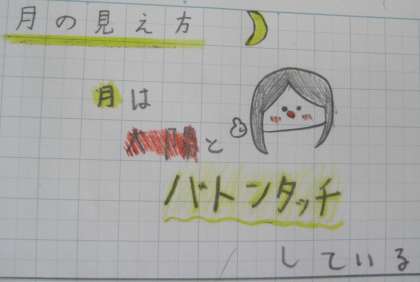 月の見え方
月は
と
バトンタッチ
している